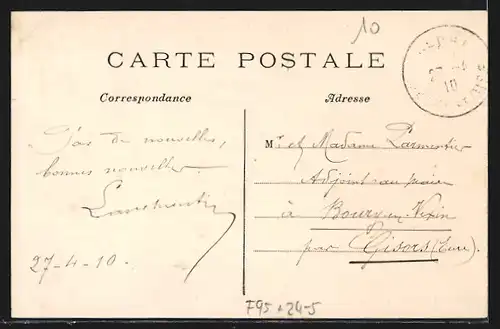 10
CARTE POSTALE
Correspondance
Adresse
Pas de nouvelles,
bonnes nouvelles.
27-4-10.
Mr et Madame Parmentier
Adjoint au maire
à Boury en Vexin
par Gisors (Eure)
27 -4
10
F95+24-5